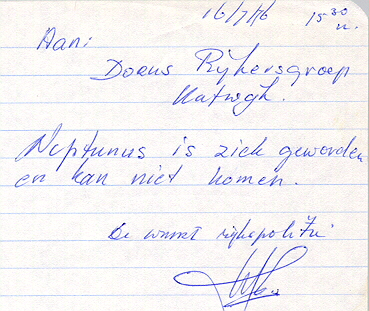 16/7/76 15 30 u.
Aan:
Dorus Rijkersgroep
Katwijk.
Neptunus is ziek geworden
en kan niet komen.
De rijkspolitie